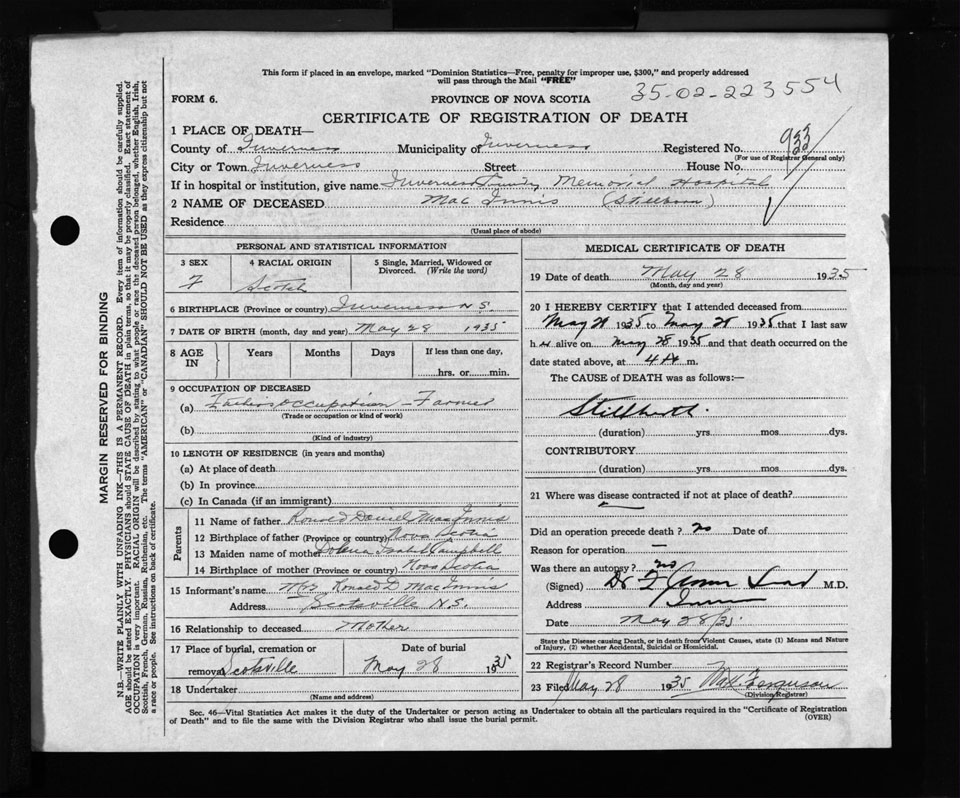 This form if placed in an envelope, marked "Dominion Statistics—Free, penalty for improper use, $300," and properly addressed
will pass through the Mail "FREE"
35-02-223554
FORM 6.
PROVINCE OF NOVA SCOTIA
CERTIFICATE OF REGISTRATION OF DEATH
1 PLACE OF DEATH—
County of Inverness Municipality of Inverness Registered No. 933
(For use of Registrar General only)
City or Town Inverness Street House No.
If in hospital or institution, give name Inverness Memorial Hospital
2 NAME OF DECEASED Mac Innis (Stillborn)
Residence
(Usual place of abode)
PERSONAL AND STATISTICAL INFORMATION
3 SEX 4 RACIAL ORIGIN 5 Single, Married, Widowed or Divorced. (Write the word)
F Scotch
6 BIRTHPLACE (Province or country) Inverness N.S.
7 DATE OF BIRTH (month, day and year) May 28 1935
8 AGE IN Years Months Days If less than one day, hrs. or min.
9 OCCUPATION OF DECEASED
(a) Father's occupation - Farmer
(Trade or occupation or kind of work)
(b)
(Kind of industry)
10 LENGTH OF RESIDENCE (in years and months)
(a) At place of death
(b) In province
(c) In Canada (if an immigrant)
Parents
11 Name of father Ronald Daniel MacInnis
12 Birthplace of father (Province or country) Nova Scotia
13 Maiden name of mother Isabel Campbell
14 Birthplace of mother (Province or country) Nova Scotia
15 Informant's name Mrs Ronald D MacInnis
Address Scotsville N.S.
16 Relationship to deceased Mother
17 Place of burial, cremation or removal Scotsville Date of burial May 28 1935
18 Undertaker
(Name and address)
MEDICAL CERTIFICATE OF DEATH
19 Date of death May 28 1935
(Month, day and year)
20 I HEREBY CERTIFY that I attended deceased from
May 28 1935 to May 28 1935 that I last saw
h er alive on May 28 1935 and that death occurred on the
date stated above, at 4 A m.
The CAUSE of DEATH was as follows:—
Stillbirth.
(duration) yrs. mos. dys.
CONTRIBUTORY
(duration) yrs. mos. dys.
21 Where was disease contracted if not at place of death?
Did an operation precede death? no Date of
Reason for operation —
Was there an autopsy? no
(Signed) Dr M.D.
Address
Date May 28/35
State the Disease causing Death, or in death from Violent Causes, state (1) Means and Nature
of Injury, (2) whether Accidental, Suicidal or Homicidal.
22 Registrar's Record Number
23 Filed May 28 1935 Ferguson
(Division Registrar)
Sec. 46—Vital Statistics Act makes it the duty of the Undertaker or person acting as Undertaker to obtain all the particulars required in the "Certificate of Registration
of Death" and to file the same with the Division Registrar who shall issue the burial permit.
(OVER)
MARGIN RESERVED FOR BINDING
N.B.—WRITE PLAINLY WITH UNFADING INK—THIS IS A PERMANENT RECORD. Every item of information should be carefully supplied.
AGE should be stated EXACTLY. PHYSICIANS should STATE CAUSE OF DEATH in plain terms, so that it may be properly classified. Exact statement of
OCCUPATION is very important. RACIAL ORIGIN will be described by stating to what people or race the deceased person belonged, whether English, Irish,
Scottish, French, German, Russian, Ruthenian, etc. The terms "AMERICAN" or "CANADIAN" SHOULD NOT BE USED as they express citizenship but not
a race or people. See instructions on back of certificate.